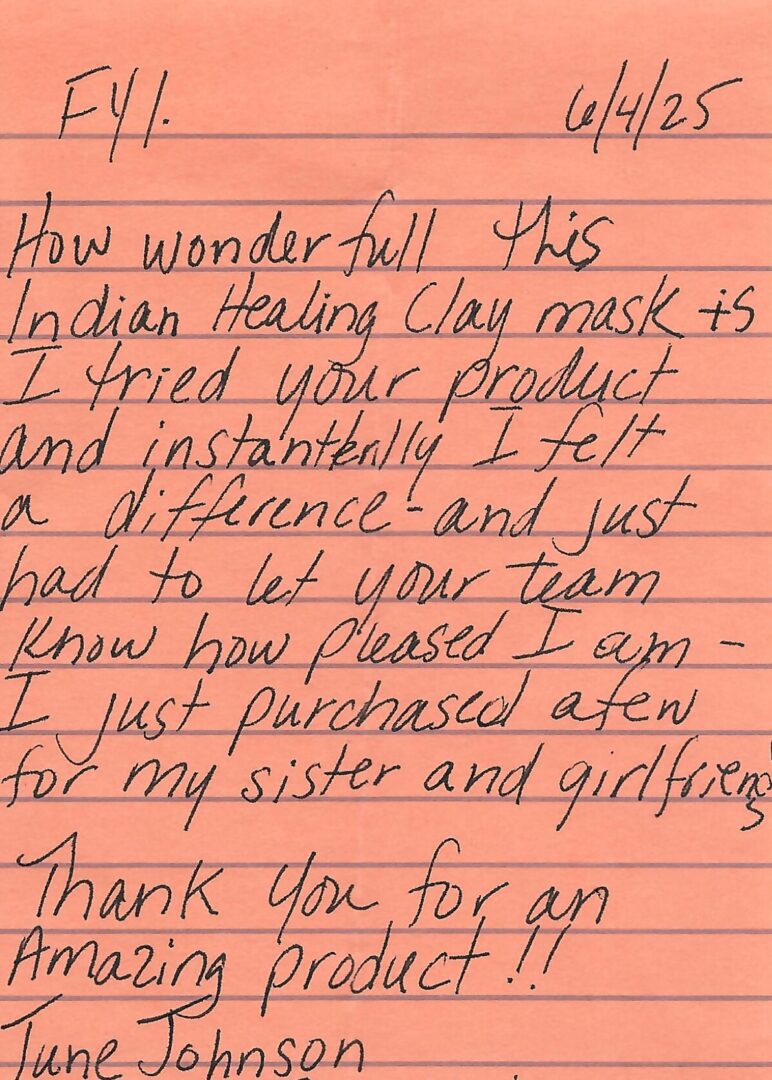 FYI.
6/4/25
How wonderfull this
Indian Healing Clay mask is
I tried your product
and instantenlly I felt
a difference - and just
had to let your team
know how pleased I am -
I just purchased afew
for my sister and girlfriends
Thank you for an
Amazing product!!
June Johnson